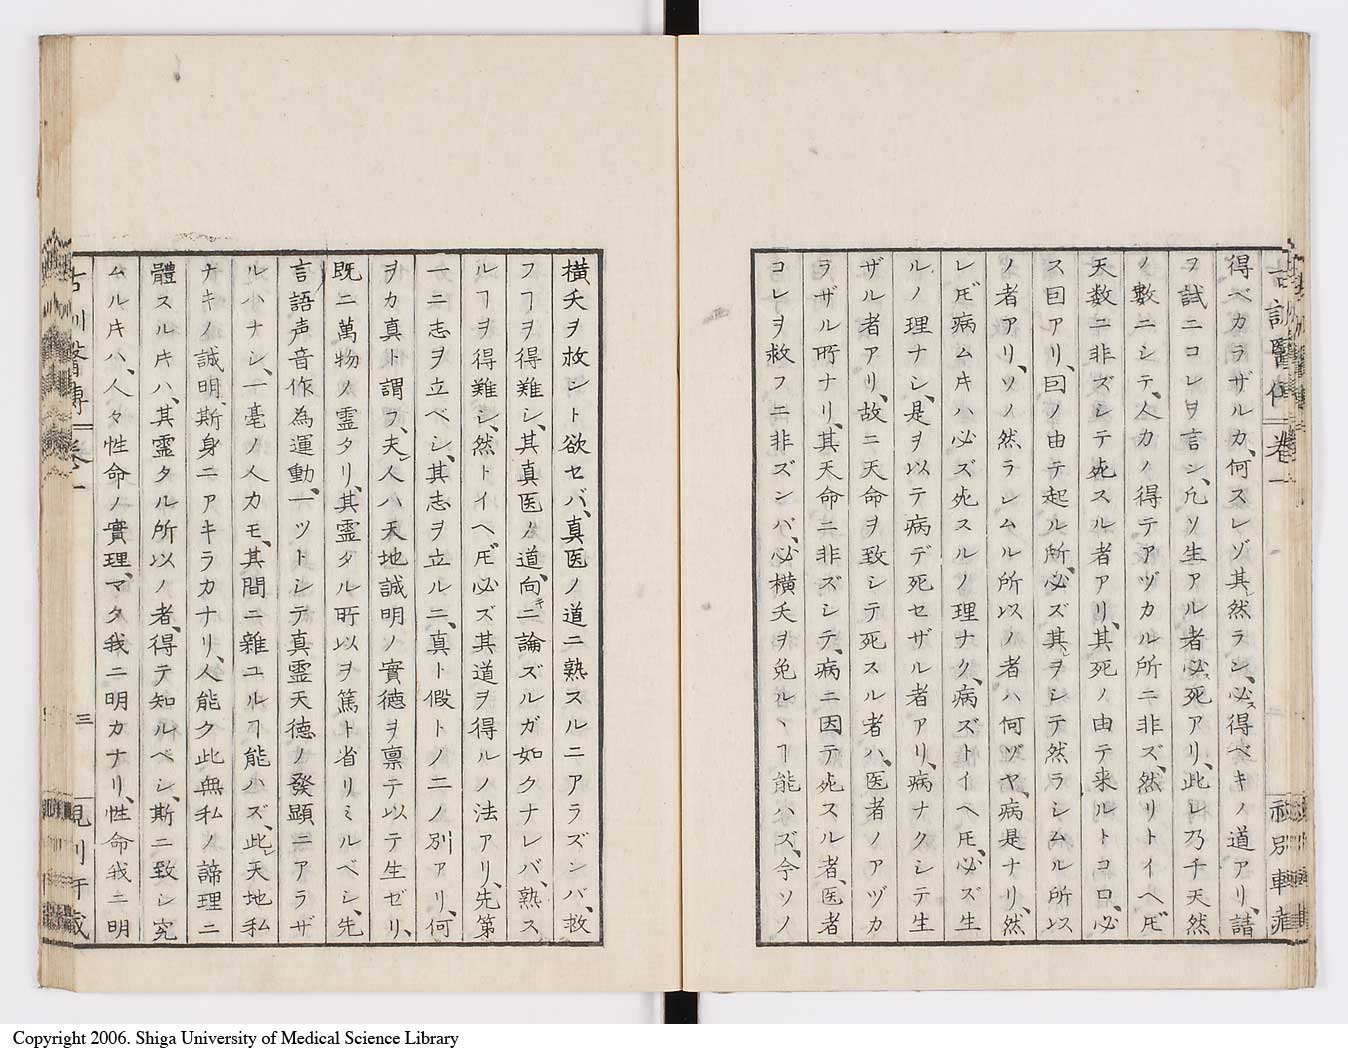 得ベカラザルカ、何スレゾ其レ然ラン、必ス得ベキノ道アリ、請
ヲ試ニコレヲ言ン、凡ソ生アル者必死アリ、此レ乃チ天然
ノ數ニシテ、人カノ得テアヅカル所ニ非ズ、然リトイヘ𪜈
天数ニ非ズシテ死スル者アリ、其死ノ由テ来ルトコロ、必
ス曰アリ、曰ノ由テ起ル所、必ズ其レヲシテ然ラシムル所以
ノ者アリ、ソノ然ラレムル所以ノ者ハ何ゾヤ、病是ナリ、然
レ𪜈病ムキハ必ズ死スルノ理ナク、病ズトイヘ𪜈、必ズ生
ルノ理ナシ、是ヲ以テ病デ死セザル者アリ、病ナクシテ生
ザル者アリ、故ニ天命ヲ致シテ死スル者ハ、医者ノアヅカ
ラザル所ナリ、其天命ニ非ズシテ、病ニ因テ死スル者、医者
コレヲ救フニ非ズンバ、必横夭ヲ免ルヽヿ能ハズ、今ソノ
横夭ヲ救ント欲セバ、真医ノ道ニ熟スルニアラズンバ、救
フヿヲ得難シ、其真医ノ道、向キニ論ズルガ如クナレバ、熟ス
ルヿヲ得難シ、然トイヘ𪜈必ズ其道ヲ得ルノ法アリ、先第
一ニ志ヲ立ベシ、其志ヲ立ルニ、真ト假トノ二ノ別アリ、何
ヲカ真ト謂フ、夫レ人ハ天地誠明ノ實德ヲ禀テ以テ生ゼリ、
既ニ萬物ノ霊タリ、其霊タル所以ヲ篤ト省リミルベシ、先
言語声音作為運動、一ツトシテ真霊天徳ノ發顯ニアラザ
ルハナシ、一毫ノ人カモ、其間ニ雜ユルヿ能ハズ、此レ天地私
ナキノ誠明、斯身ニアキラカナリ、人能ク此無私ノ諦理ニ
體スルキハ、其霊タル所以ノ者、得テ知ルベシ、斯ニ致シ究
ムルキハ、人々性命ノ實理、マタ我ニ明カナリ、性命我ニ明
三
Copyright 2006. Shiga University of Medical Science Library